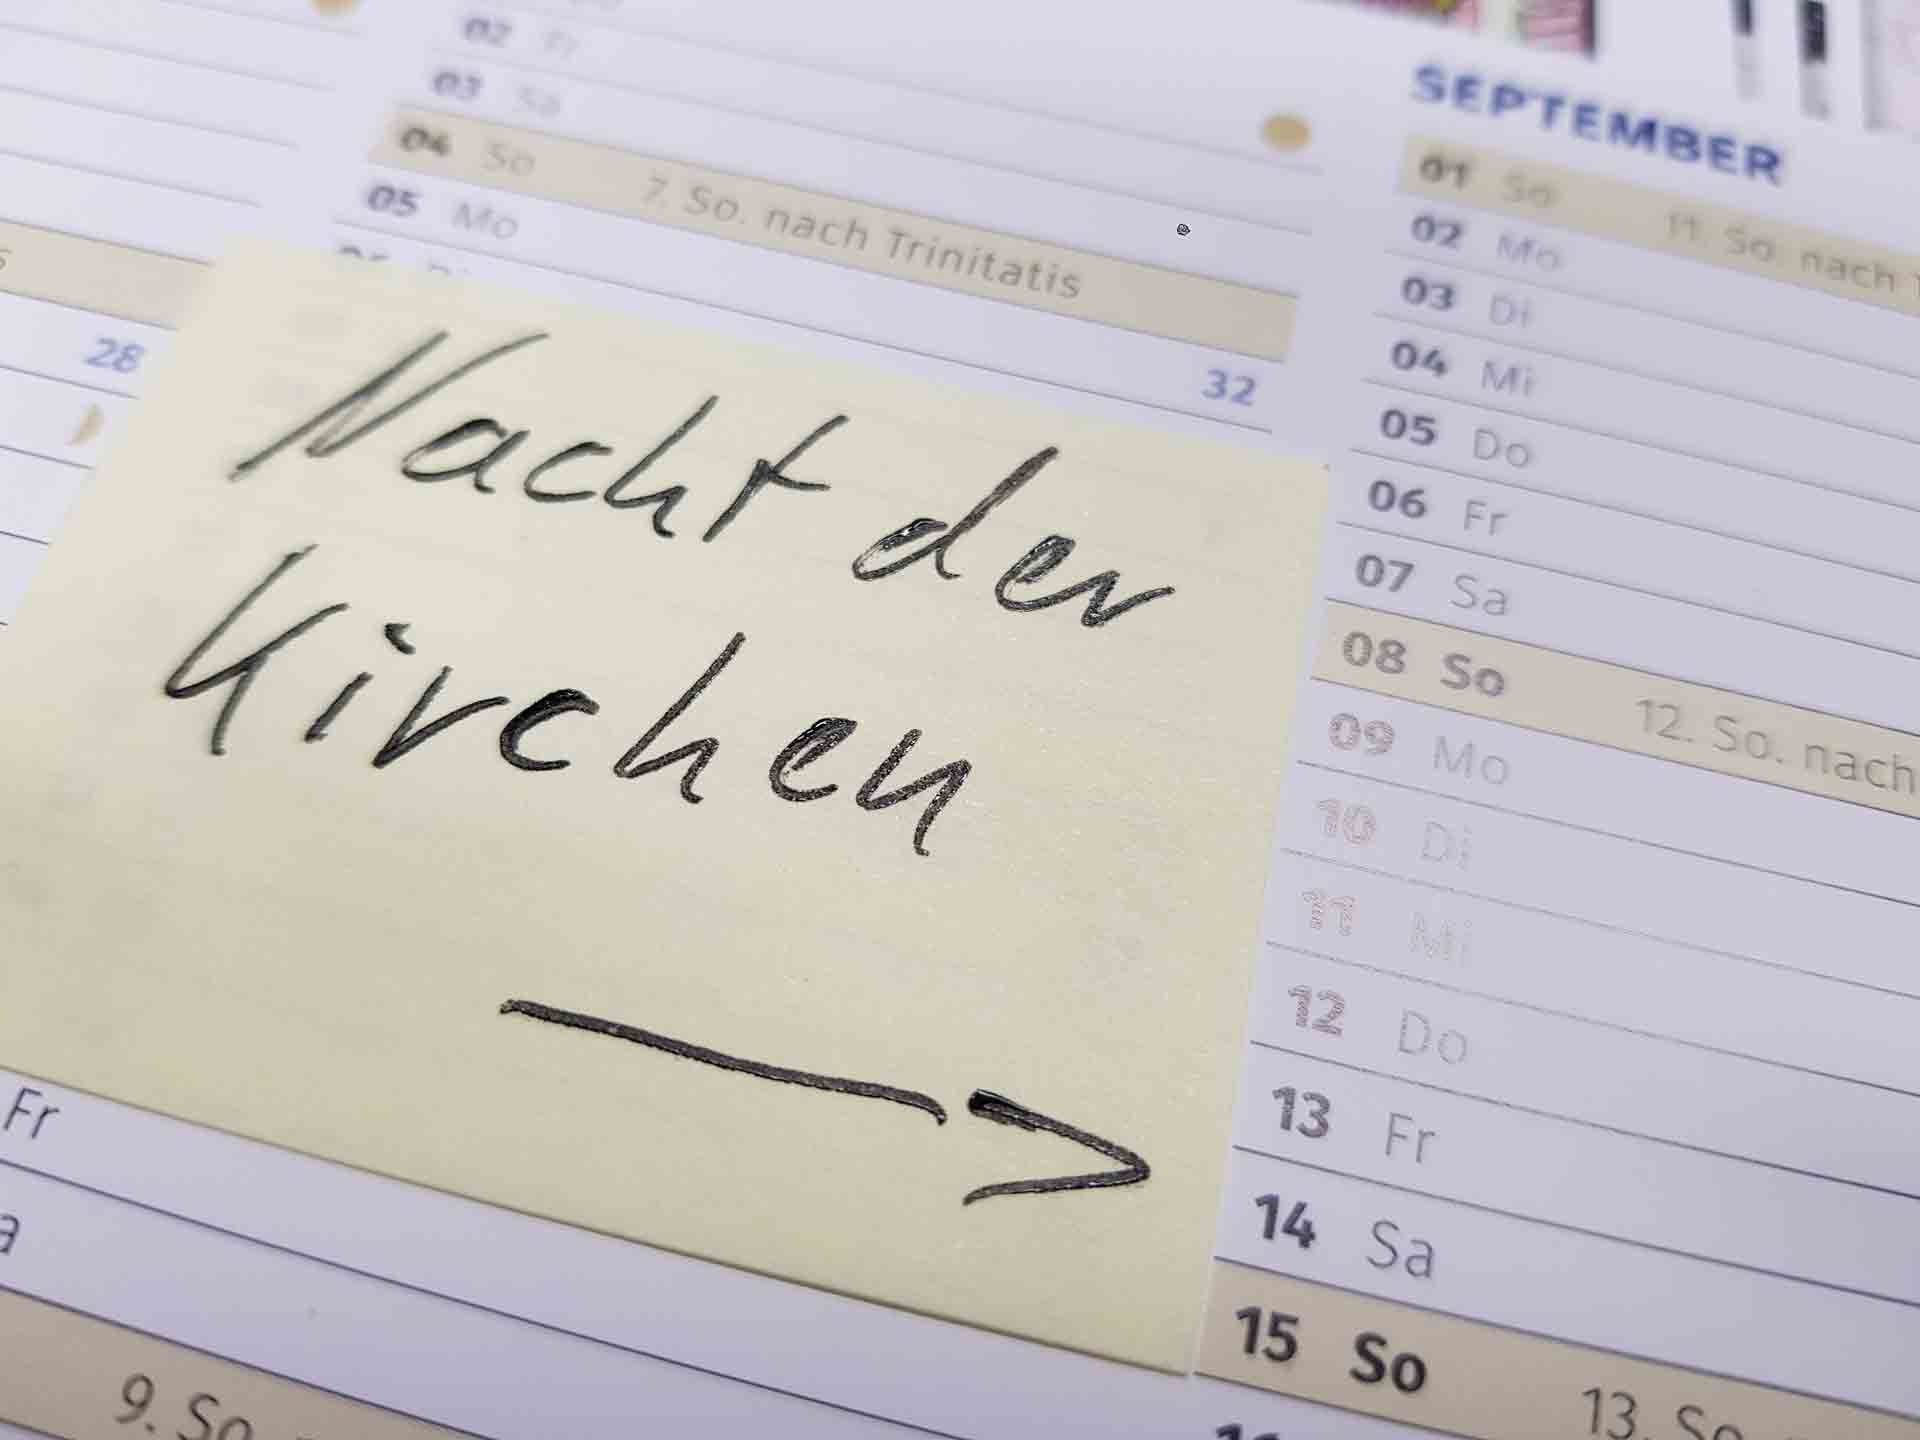 02 Fr
03 Sa
04 So 7. So. nach Trinitatis
05 Mo
32
28
Nacht der
Kirchen
Fr
9. So.
SEPTEMBER
01 So 11. So. nach
02 Mo
03 Di
04 Mi
05 Do
06 Fr
07 Sa
08 So 12. So. nach
09 Mo
10 Di
11 Mi
12 Do
13 Fr
14 Sa
15 So 13. So.